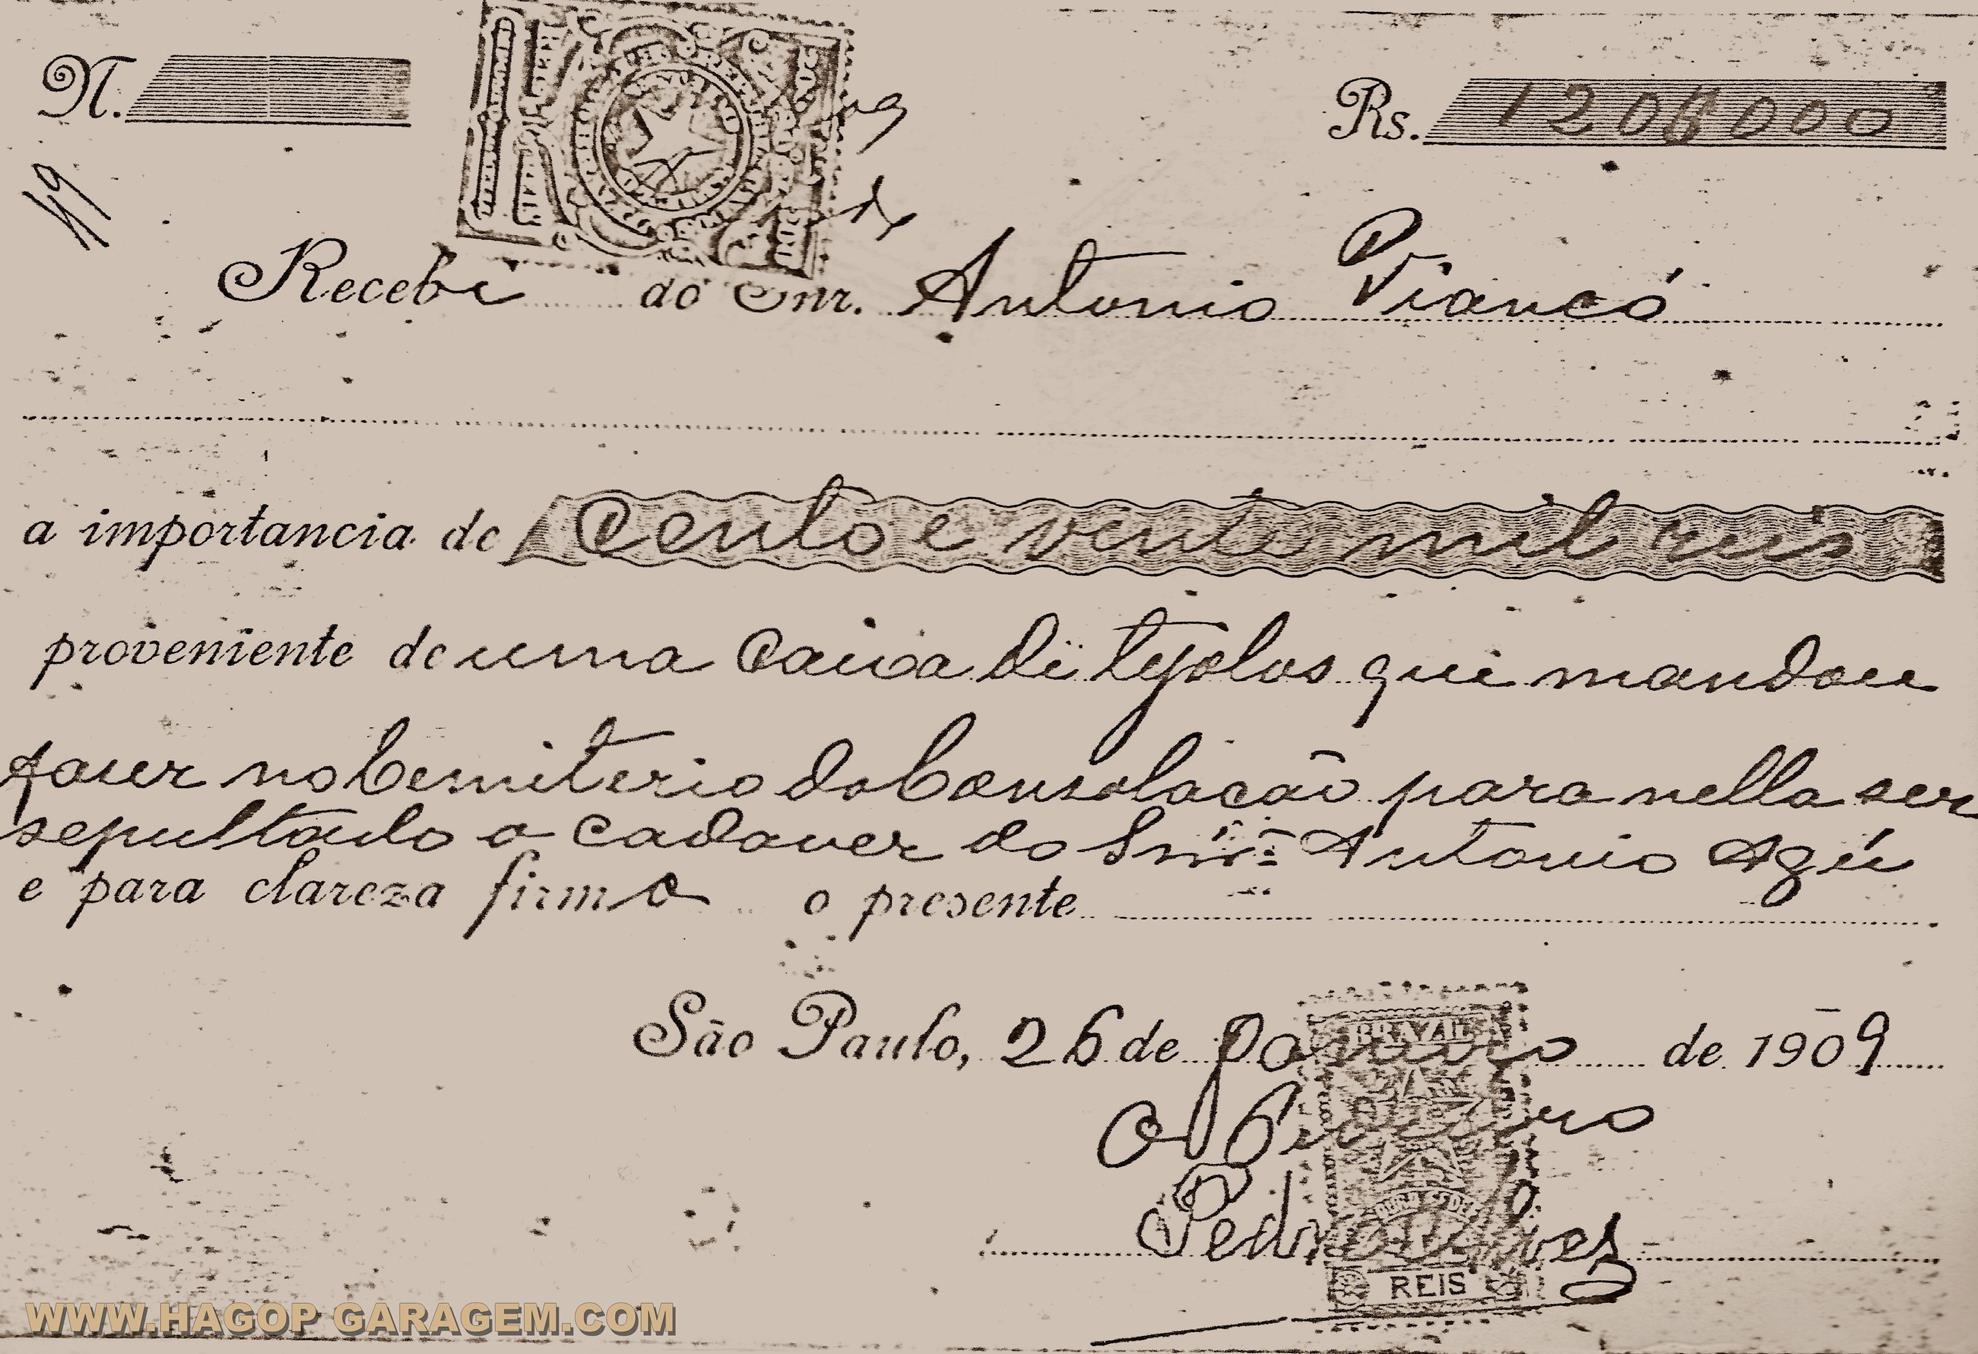 N.
Rs. 120$000
49
Recebi do Snr. Antonio Piancó
a importancia de Cento e vente mil reis
proveniente de uma caixa de tejolos que mandou
faser no Cemiterio da Consolação para nella ser
sepultado o cadaver do Snr. Antonio Agú
e para clareza firmo o presente
São Paulo, 26 de janeiro de 1909
BRAZIL
O
Pedro Alves
REIS
WWW.HAGOP GARAGEM.COM